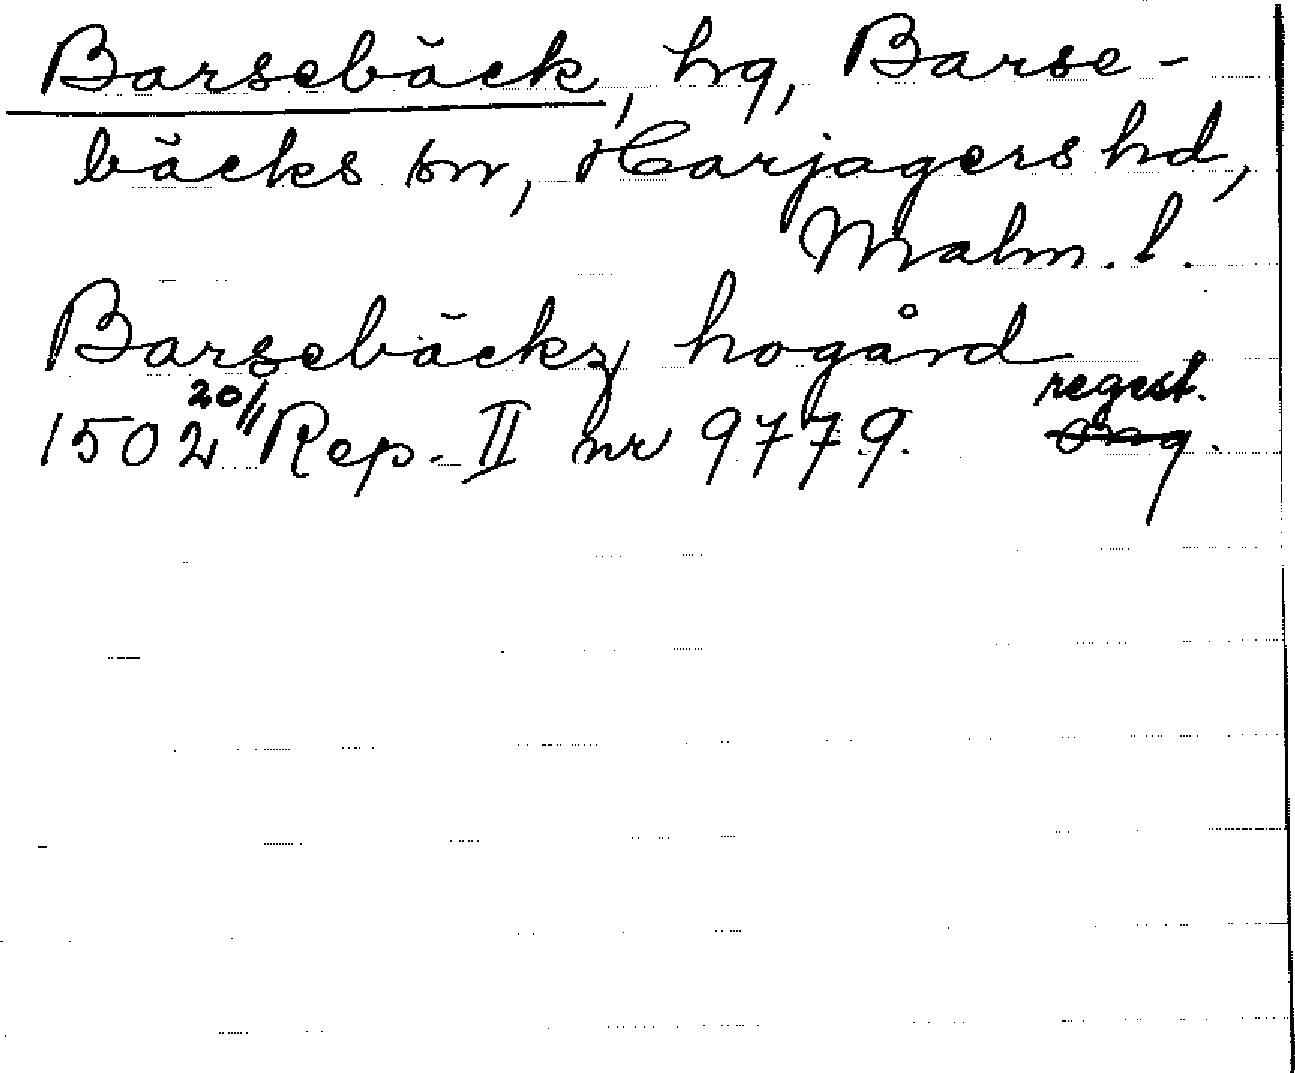 Barsebäck, hg, Barse-
bäcks sn, Harjagers hd,
Malm. l.
Barsebäckz hogård
1502 20/11 Rep. II nr 9779. regest.